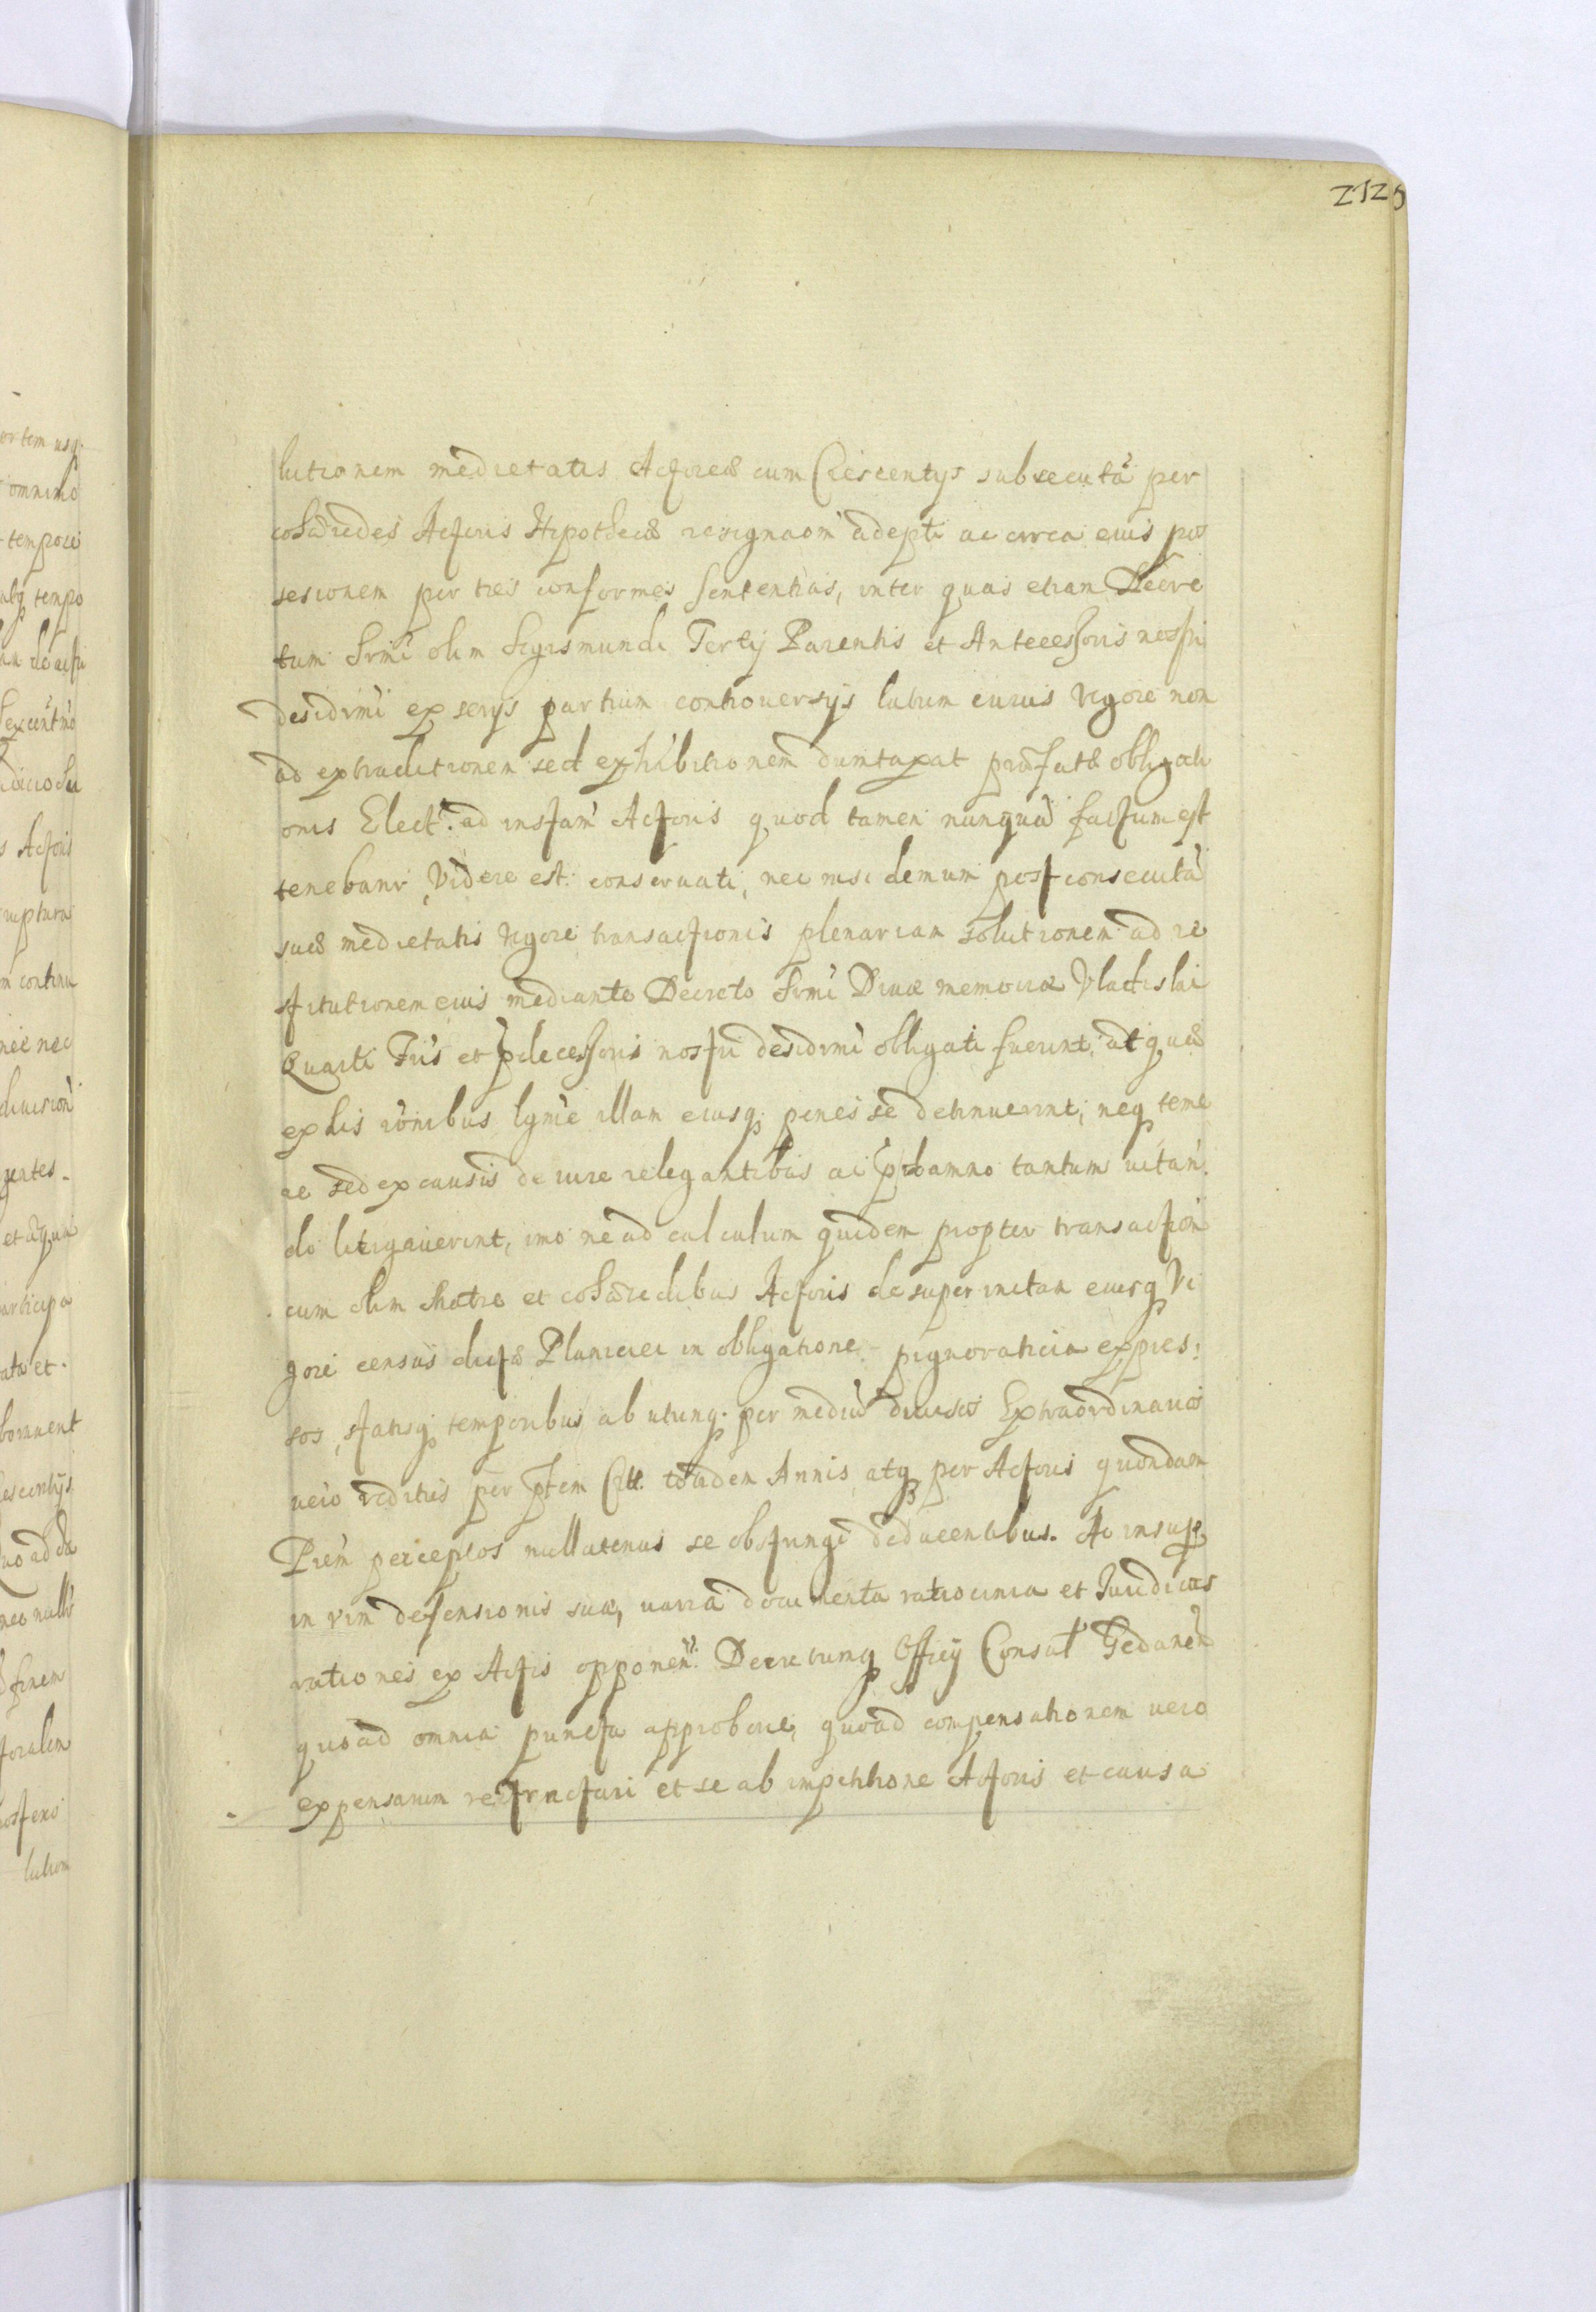 2125
lutionem medietatis Actoreae cum Crescentys subsecutā per
cohaeredes Actoris Hipothecae resignaōm adepti ac circa eius pos
sesionem per tres conformes sententias, inter quas etiam Decre
tum Srmi olim Sigismundi Tertij Parentis et Antecessoris nostri
desidrmi ex serys partium controuersys latum cuius vigore non
ad extraditionem sed exhibitionem dumtaxat praefatae obligati
onis Elect: ad instam Actoris quod tamen nunquā factum est
tenebanr, Videre est: conseruati, nec nisi demum post consecutā
suae medietatis vigore transactionis plenariam solutionem ad re
stitutionem eius mediante Decreto Srmi Divae memoriae Vladislai
Quarti Fris et pdecessoris nostri desidrmi obligati fuerint, at quae
ex his rōnibus lgme illam eiusq penes se detinuerint, neq teme
re sed ex causis de iure relegantibus ac p damno tantum uitan.
do litigauerint, imo ne ad calculum quidem propter transactiōn
cum olim Matre et cohaeredibus Actoris desuper initam eiusq Vi
gore census dictae Planiciei in obligatione pignoraticia expres:
sos, statisq temporibus ab utunq. per mediū diuisos Extraordinarios
uero reditus per ptem Citt. totidem Annis, atq per Actoris quondam
Prem perceptos nullatenus se obstringi deducentibus. Ac insup
in vim defensionis suae, uaria documenta ratiocinia et Juridicas
rationes ex Actis opponen: Decretumq Officij Consul Gedanen
quoad omnia puncta approbari, quoad compensationem uero
expensarum restructuri et se ab impetitione Actoris et causa